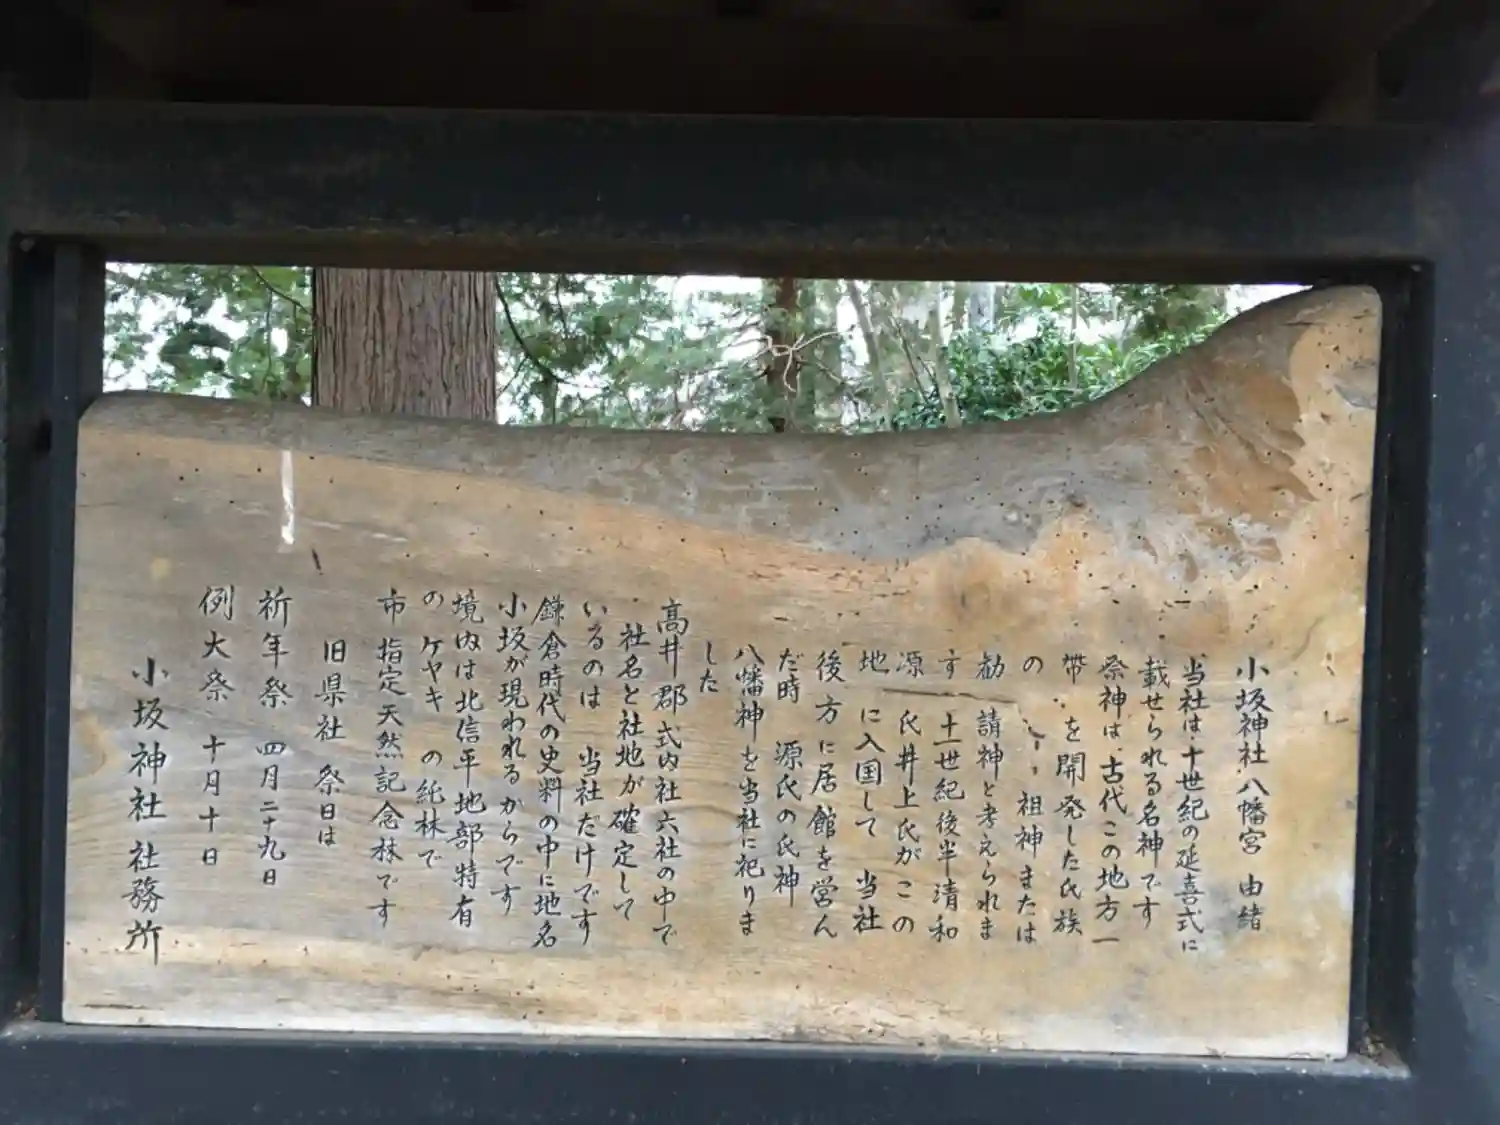 小坂神社 八幡宮 由緒
当社は十世紀の延喜式に
載せられる名神です
祭神は古代この地方一
帯を開発した氏族
の 祖神または
勧請神と考えられま
す 十一世紀後半清和
源氏井上氏がこの
地に入国して 当社
後方に居館を営ん
だ時 源氏の氏神
八幡神を当社に祀りま
した
高井郡式内社六社の中で
社名と社地が確定して
いるのは 当社だけです
鎌倉時代の史料の中に地名
小坂が現われるからです
境内は北信平地部特有
の ケヤキ の純林で
市指定天然記念林です
旧県社 祭日は
祈年祭 四月二十九日
例大祭 十月十日
小坂神社 社務所